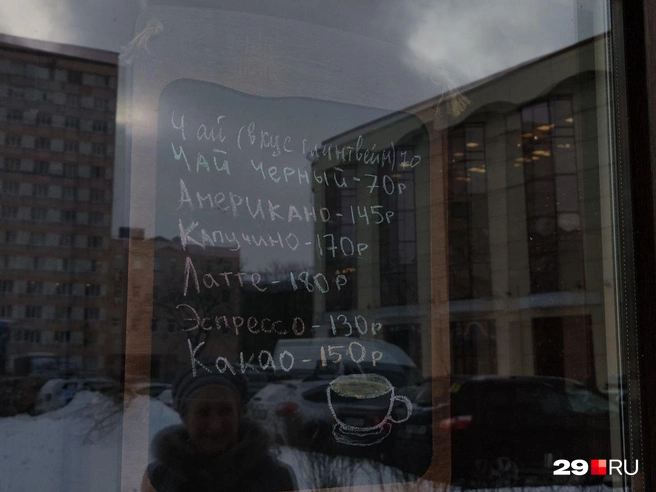 Чай (вкус глинтвейн) 70
Чай черный - 70р
Американо - 145р
Капучино - 170р
Латте - 180р
Эспрессо - 130р
Какао - 150р
29 RU